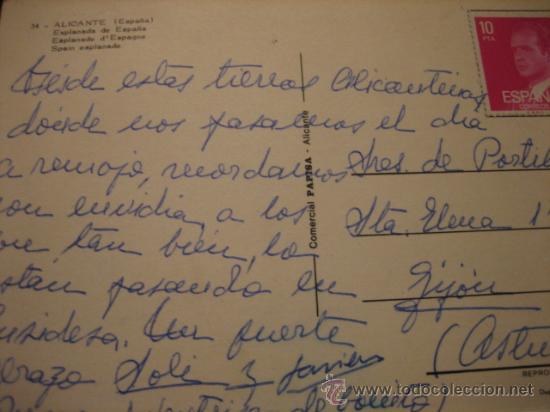 34 - ALICANTE (España)
Esplanada de España
Esplanade d'Espagne
Spain esplanade
10
PTA
ESPAÑA
Desde estas tierras Alicantinas
donde nos pasamos el día
a remojo, recordamos
con envidia, a los
que tan bien, lo
están pasando en
Un fuerte
abrazo Loli y Javier
Comercial PAPISA - Alicante
Sres. de Portil
Sta. Elena 1
Gijón
(Astu
REPRO
todocoleccion